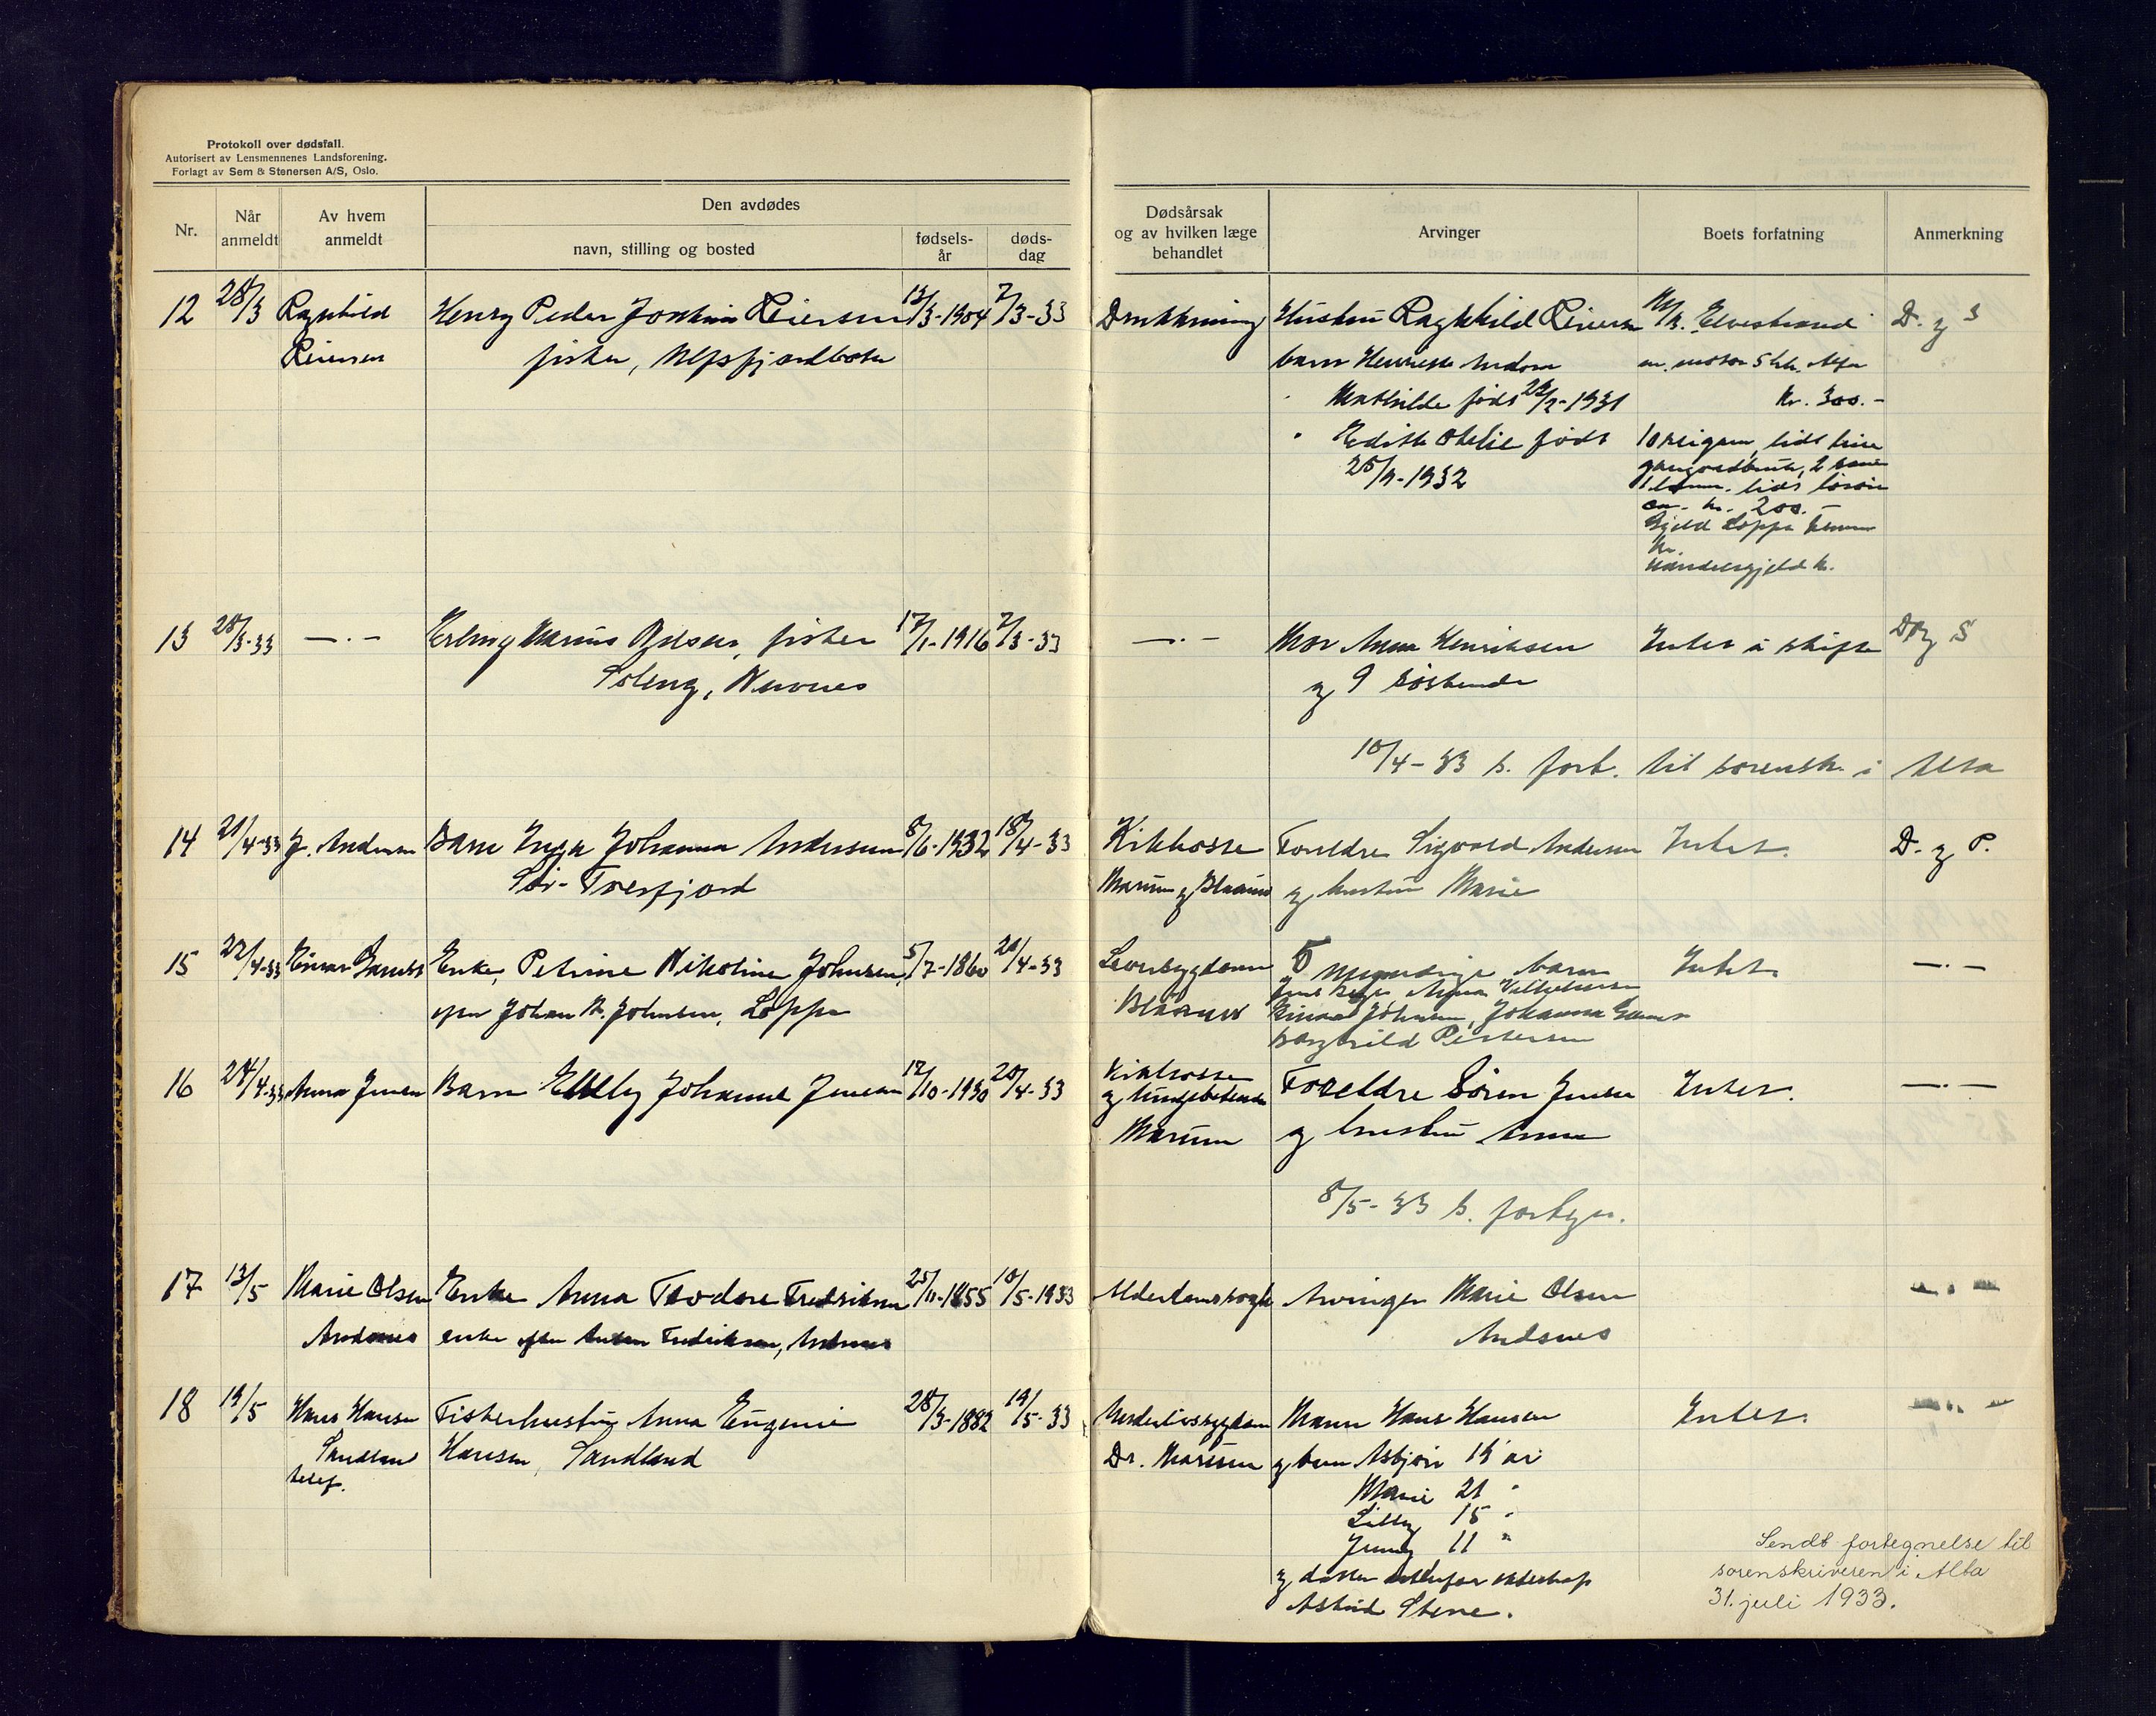 Protokoll over dødsfall.
Autorisert av Lensmennenes Landsforening.
Forlagt av Sem & Stenersen A/S, Oslo.
Nr.
Når anmeldt
Av hvem anmeldt
Den avdødes
navn, stilling og bosted
fødsels-år
døds-dag
Dødsårsak og av hvilken læge behandlet
Arvinger
Boets forfatning
Anmerkning
12 28/3 Ragnhild Henry Peder Joakim Reiersen 13/3-1904 7/3-33 Drukning Hustru Ragnhild Reiersen M/k. Elvestrand D. og S
Reiersen fisker, Nefsfjordbotn barn Henriette Andora m. motor 5 hk. Alfa
" Mathilde født 22/2-1931 kr. 300.-
" Edith Otelie født
25/9-1932
1 lam. lidt løsøre
ca. kr. 200.-
Gjeld Loppa komm.
kr.
Handelsgjeld kr.
13 28/3-33 —.— Erling Marius Olsen, fisker 17/1-1916 7/3-33 —.— Mor Anna Henriksen Intet å skifte D og S
Soleng, Nuvnes og 9 søskende
10/4-33 s. fort. til sorensk. i Alta
14 21/4-33 J. Andersen Barn Inga Johanna Andersen 8/6-1932 18/4-33 Kikhoste Foreldre Sigvald Andersen Intet. D. og P.
Sør-Tverfjord Marum og hustru Marie
15 22/4-33 Einar Enke, Petrine Nikoline Johnsen, 5/7-1860 20/4-33 5 myndige barn Intet. —.—
efter Johan M. Johnsen, Loppa
Einar Johnsen, Johanna
Borghild Pettersen
16 24/4-33 Anna Jensen Barn Elly Johanne Jensen 12/10-1930 20/4-33 Kikhoste Foreldre Søren Jensen Intet. —.—
og lungebetendelse
Marum og hustru Anna
8/5-33 s. fortegn.
17 13/5 Marie Olsen Enke Anna Teodore Fredriksen 25/11-1855 10/5-1933 Alderdomssvagh. Arvinger Marie Olsen —.—
Andsnes enke efter Anton Fredriksen, Andsnes Andsnes
18 19/5 Hans Hansen Fiskerhustru Anna Eugenie 28/3-1882 19/5-33 Underlivssygdom Mann Hans Hansen Intet. —.—
Sandland Hansen, Sandland Dr. Marum og barn Asbjørn 19 år
telef.
Marie 21 "
Lilly 15 "
Jenny 11 "
og datter utenfor ekteskap
Astrid Stene.
Sendt fortegnelse til
sorenskriveren i Alta
31. juli 1933.